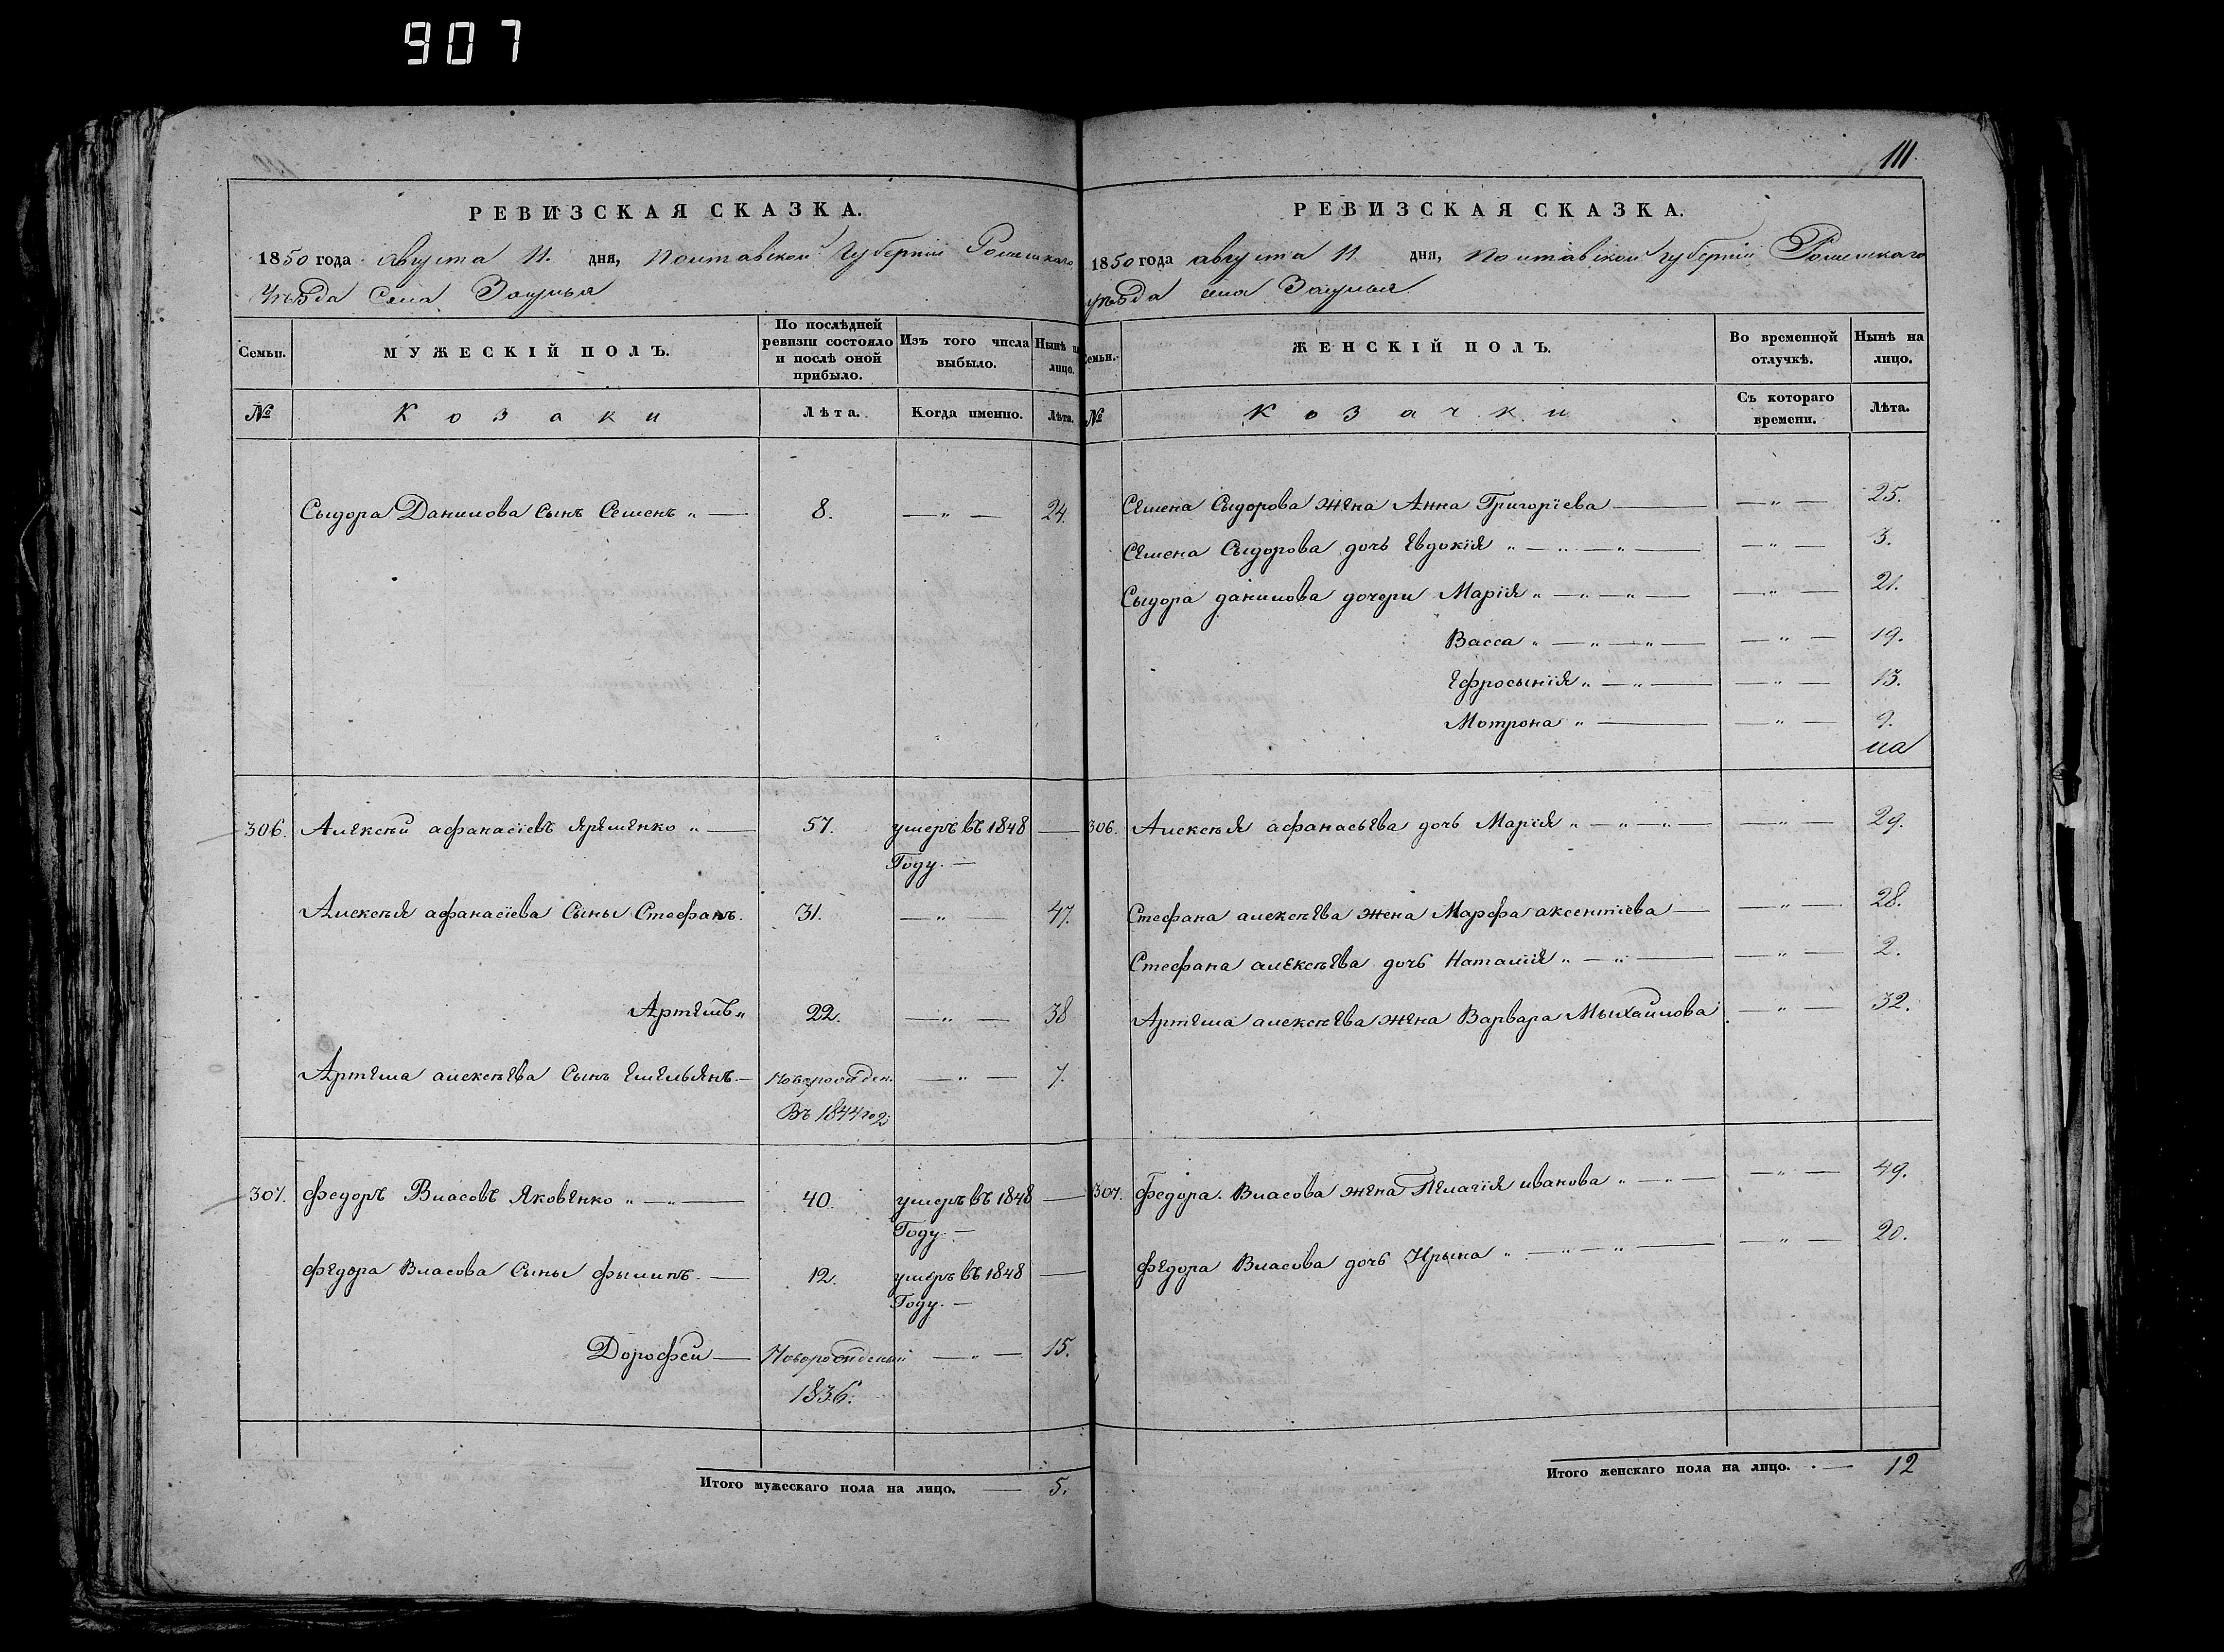 907
111.
РЕВИЗСКАЯ СКАЗКА.
1850 года Августа 11. дня, Полтавской Губерніи Роменскаго
Уѣзда Села
Семьи.
МУЖЕСКІЙ ПОЛЪ.
По послѣдней ревизіи состояло и послѣ оной прибыло.
Изъ того числа выбыло.
Нынѣ на лицо.
№
Козаки
Лѣта.
Когда именно.
Лѣта.
Сыдора Данилова Сынъ Семенъ „ — 8. — „ — 24.
306. Алексѣй афанасіевъ Яременко „ — 57. умеръ въ 1848 —
Году. —
Алексѣя афанасіева Сыны Стефанъ. 31. — „ — 47.
Артемъ „ 22. — „ — 38
Артема алексѣева Сынъ Емельянъ. — новорожден. — „ — 7.
Въ 1844 год
307. Федоръ Власовъ Яковенко „ — „ — 40. умеръ въ 1848 —
Году. —
Федора Власова Сыны Филипъ. — 12. умеръ въ 1848 —
Году. —
Дорофей — Новорожденый — „ — 15.
1836.
Итого мужескаго пола на лицо. — 5.
РЕВИЗСКАЯ СКАЗКА.
1850 года августа 11 дня, Полтавской губерніи Роменскаго
уѣзда села
Семьи.
ЖЕНСКІЙ ПОЛЪ.
Во временной отлучкѣ.
Нынѣ на лицо.
№
Козачки
Съ котораго времени.
Лѣта.
Семена Сыдорова жена Анна Григоріева — — „ — 25.
Семена Сыдорова дочь Евдокія „ — „ — „ — — „ — 3.
Сыдора данилова дочери Марія „ — „ — „ — — „ — 21.
Васса „ — „ — „ — — „ — 19.
Ефросынія „ — „ — — „ — 13.
Мотрона „ — — „ — 9.
306. Алексѣя афанасьева дочь Марія „ — „ — „ — — „ — 29.
Стефана алексѣева жена Марфа аксентіева — — „ — 28.
Стефана алексѣева дочь Наталія „ — „ — — „ — 2.
Артема алексѣева жена Варвара Мыхайлова — „ — 32.
307. Федора. Власова жена Пелагія иванова „ — „ — — „ — 49.
Федора Власова дочь Ирына „ — „ — „ — — „ — 20.
Итого женскаго пола на лицо. — 12